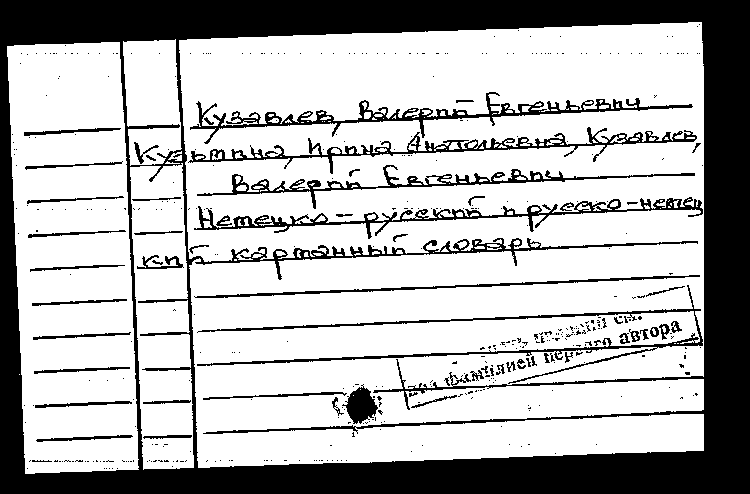 Кузавлев, Валерий Евгеньевич
Кузьмина, Ирина Анатольевна, Кузавлев,
Валерий Евгеньевич
Немецко-русский и русско-немец
кий карманный словарь
первого автора